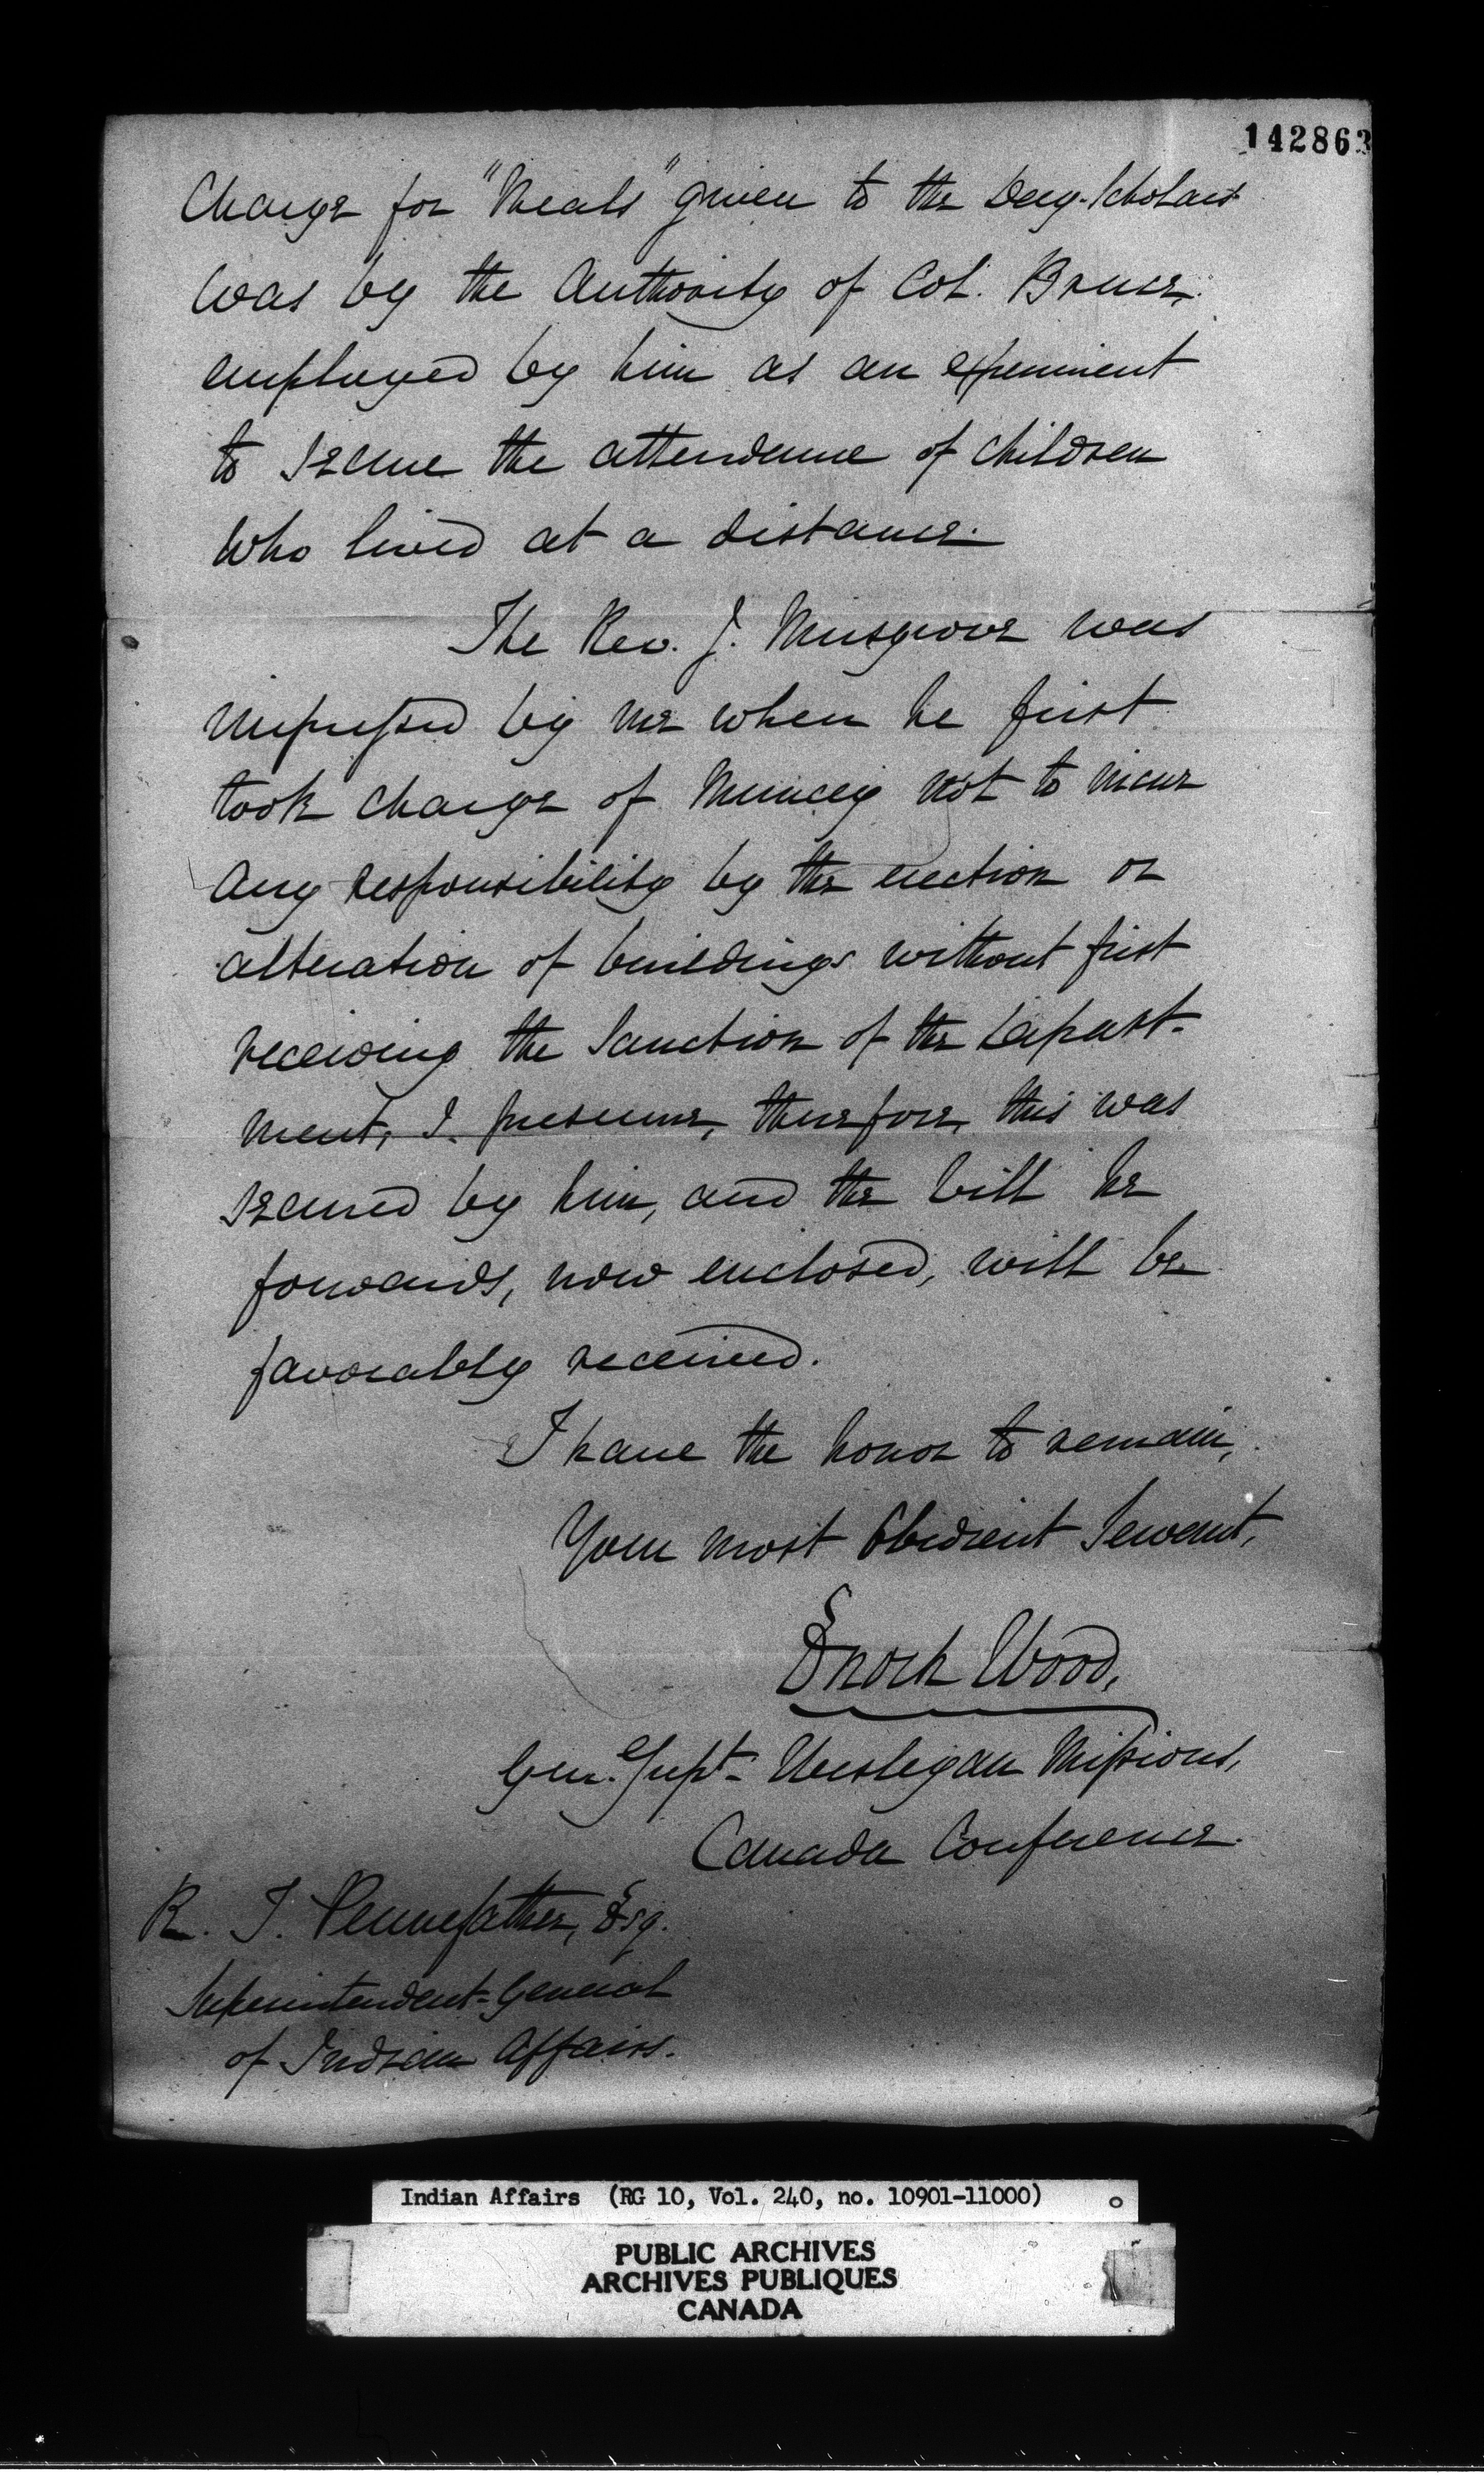 142863
Charge for "Meals" given to the Day-Scholars
was by the Authority of Col. Bruce,
employed by him as an experiment
to secure the attendance of children
who lived at a distance.
The Rev. J. Musgrove was
impressed by me when he first
took charge of Muncey not to incur
any responsibility by the erection or
alteration of buildings without first
receiving the sanction of the Depart-
ment, I presume, therefore, this was
secured by him, and the bill he
forwards, now enclosed, will be
favorably received.
I have the honor to remain,
Your most Obedient Servant,
Enoch Wood,
Gen. Supt- Wesleyan Missions,
Canada Conference.
R. T. Pennefather, Esq.
Superintendent-General
of Indian Affairs.
Indian Affairs (RG 10, Vol. 240, no. 10901-11000)
PUBLIC ARCHIVES
ARCHIVES PUBLIQUES
CANADA